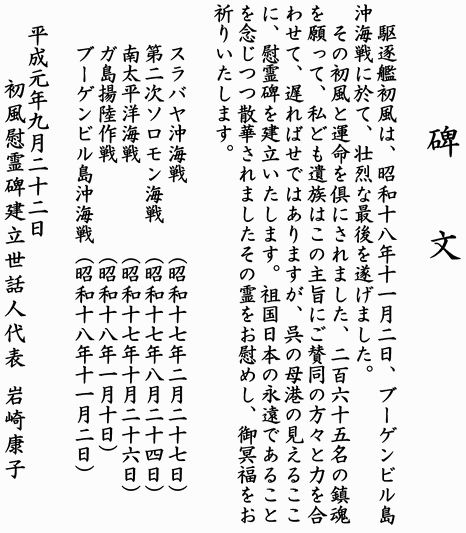 碑文
駆逐艦初風は、昭和十八年十一月二日、ブーゲンビル島
沖海戦に於て、壮烈な最後を遂げました。
その初風と運命を倶にされました、二百六十五名の鎮魂
を願って、私ども遺族はこの主旨にご賛同の方々と力を合
わせて、遅ればせではありますが、呉の母港の見えるここ
に、慰霊碑を建立いたします。祖国日本の永遠であること
を念じつつ散華されましたその霊をお慰めし、御冥福をお
祈りいたします。
スラバヤ沖海戦（昭和十七年二月二十七日）
第二次ソロモン海戦（昭和十七年八月二十四日）
南太平洋海戦（昭和十七年十月二十六日）
ガ島揚陸作戦（昭和十八年一月十日）
ブーゲンビル島沖海戦（昭和十八年十一月二日）
平成元年九月二十二日
初風慰霊碑建立世話人代表　岩崎康子